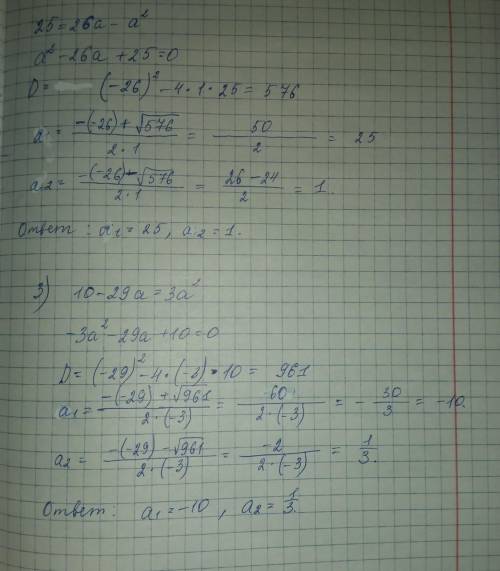 25=26a-a²
a²-26a+25=0
D= (-26)²-4·1·25=576
a₁= (-(-26)+√576)/(2·1) = 50/2 = 25
a₂= (-(-26)-√576)/(2·1) = (26-24)/2 = 1.
Ответ: a₁=25, a₂=1.
3) 10-29a=3a²
-3a²-29a+10=0
D=(-29)²-4·(-3)·10=961
a₁= (-(-29)+√961)/(2·(-3)) = 60/(2·(-3)) = -30/3 = -10.
a₂= (-(-29)-√961)/(2·(-3)) = -2/(2·(-3)) = 1/3.
Ответ: a₁=-10, a₂=1/3.